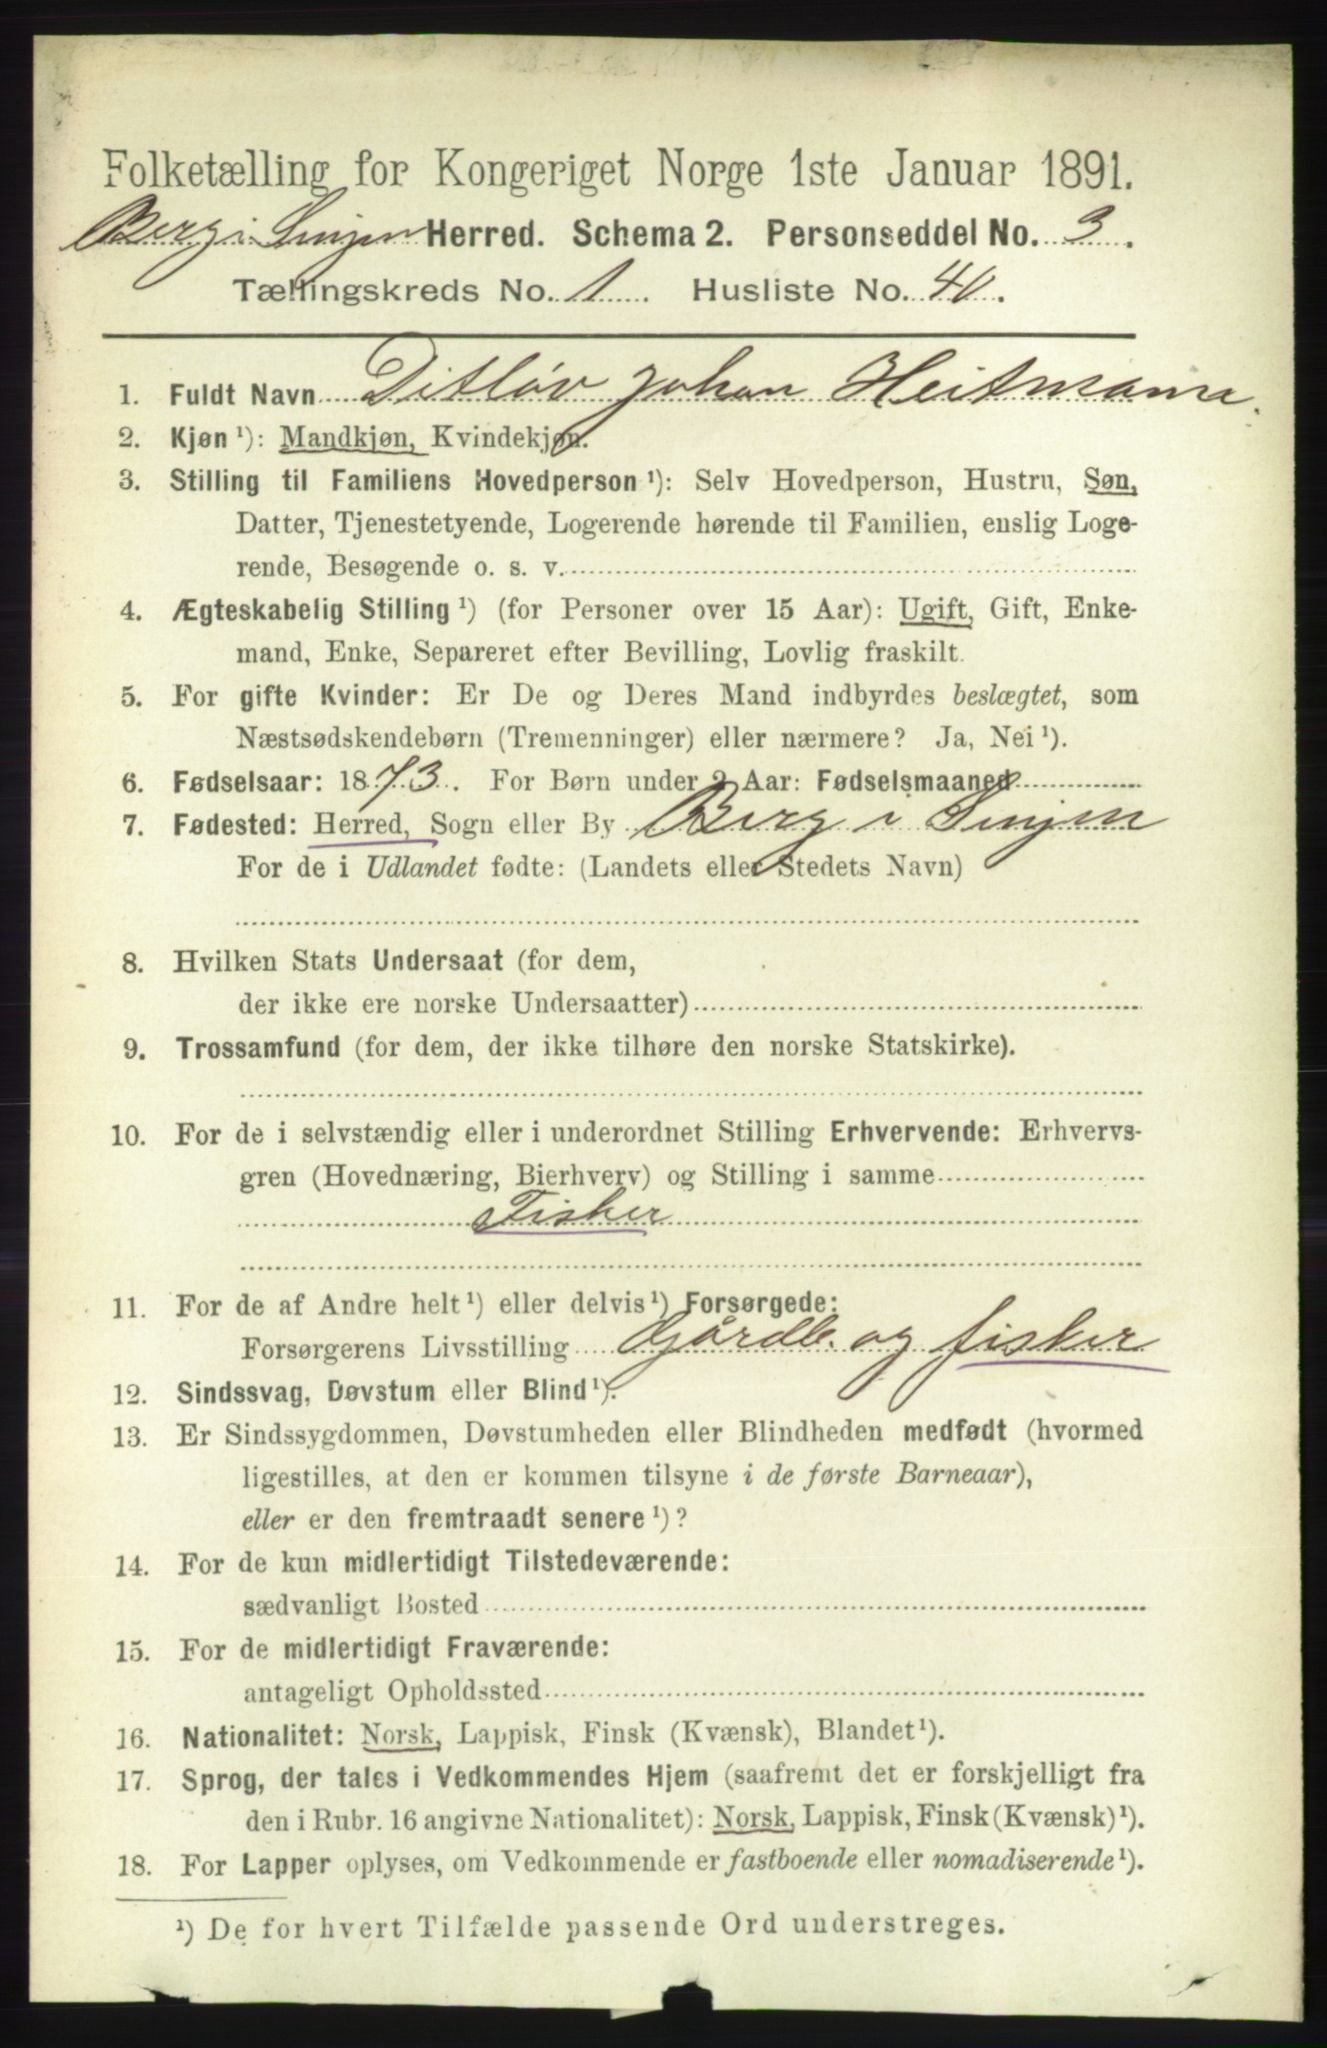 Folketælling for Kongeriget Norge 1ste Januar 1891.
Berg i Senjen Herred. Schema 2. Personseddel No. 3.
Tællingskreds No. 1. Husliste No. 40.
1. Fuldt Navn Ditløv Johan Heitmann.
2. Kjøn ¹): Mandkjøn, Kvindekjøn.
3. Stilling til Familiens Hovedperson ¹): Selv Hovedperson, Hustru, Søn,
Datter, Tjenestetyende, Logerende hørende til Familien, enslig Loge-
rende, Besøgende o. s. v.
4. Ægteskabelig Stilling ¹) (for Personer over 15 Aar): Ugift, Gift, Enke-
mand, Enke, Separeret efter Bevilling, Lovlig fraskilt.
5. For gifte Kvinder: Er De og Deres Mand indbyrdes beslægtet, som
Næstsødskendebørn (Tremenninger) eller nærmere? Ja, Nei ¹).
6. Fødselsaar: 1873. For Børn under 2 Aar: Fødselsmaaned
7. Fødested: Herred, Sogn eller By Berg i Senjen
For de i Udlandet fødte: (Landets eller Stedets Navn)
8. Hvilken Stats Undersaat (for dem,
der ikke ere norske Undersaatter)
9. Trossamfund (for dem, der ikke tilhøre den norske Statskirke).
10. For de i selvstændig eller i underordnet Stilling Erhvervende: Erhvervs-
gren (Hovednæring, Bierhverv) og Stilling i samme
Fisker
11. For de af Andre helt ¹) eller delvis ¹) Forsørgede:
Forsørgerens Livsstilling Gårdb. og fisker
12. Sindssvag, Døvstum eller Blind ¹).
13. Er Sindssygdommen, Døvstumheden eller Blindheden medfødt (hvormed
ligestilles, at den er kommen tilsyne i de første Barneaar),
eller er den fremtraadt senere ¹)?
14. For de kun midlertidigt Tilstedeværende:
sædvanligt Bosted
15. For de midlertidigt Fraværende:
antageligt Opholdssted
16. Nationalitet: Norsk, Lappisk, Finsk (Kvænsk), Blandet ¹).
17. Sprog, der tales i Vedkommendes Hjem (saafremt det er forskjelligt fra
den i Rubr. 16 angivne Nationalitet): Norsk, Lappisk, Finsk (Kvænsk) ¹).
18. For Lapper oplyses, om Vedkommende er fastboende eller nomadiserende ¹).
¹) De for hvert Tilfælde passende Ord understreges.